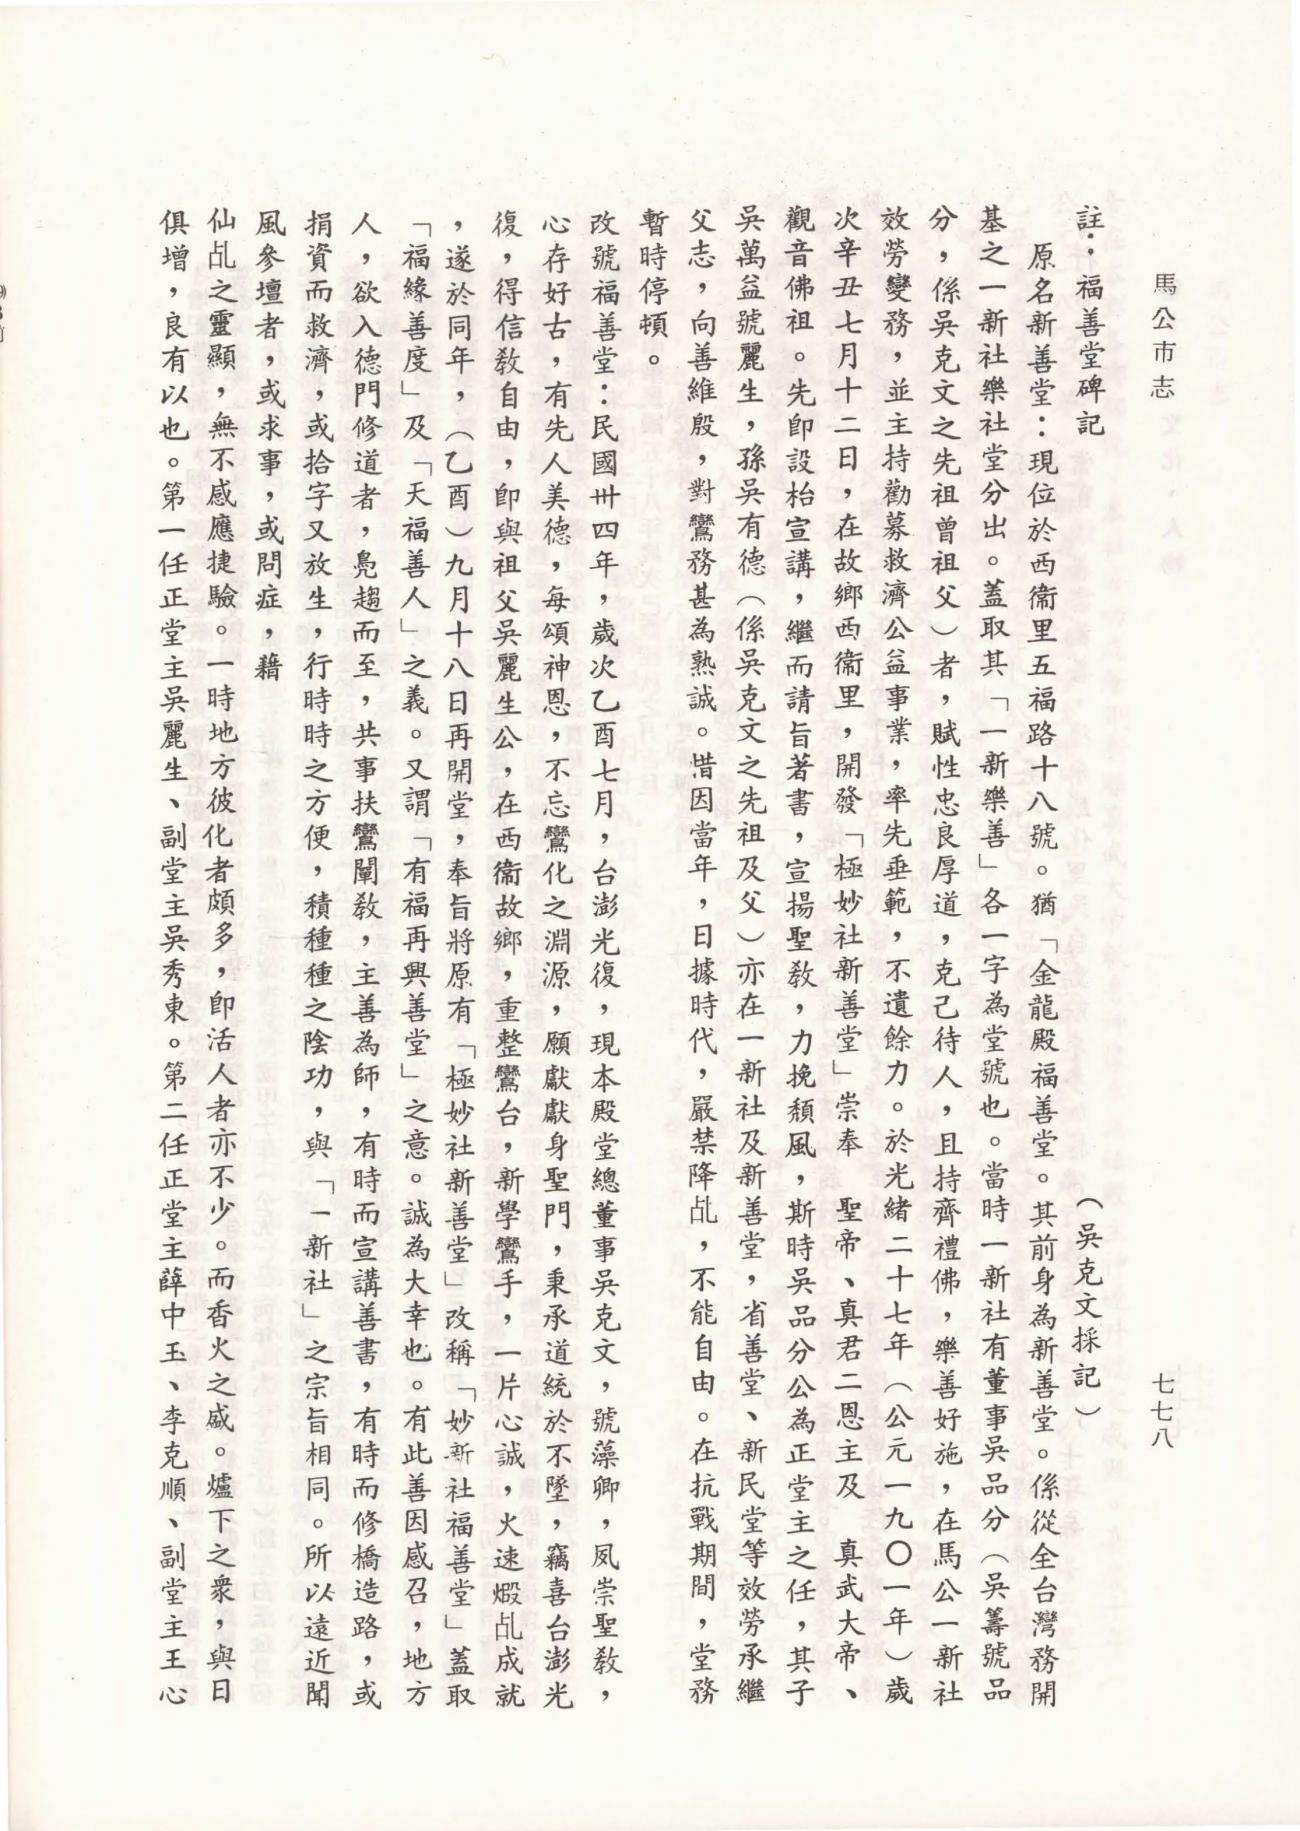 馬公市志
七七八
註：福善堂碑記
（吳克文採記）
原名新善堂：現位於西衛里五福路十八號。猶「金龍殿福善堂。其前身為新善堂。係從全台灣務開
基之一新社樂社堂分出。蓋取其「一新樂善」各一字為堂號也。當時一新社有董事吳品分（吳籌號品
分，係吳克文之先祖曾祖父）者，賦性忠良厚道，克己待人，且持齊禮佛，樂善好施，在馬公一新社
效勞變務，並主持勸募救濟公益事業，率先垂範，不遺餘力。於光緒二十七年（公元一九〇一年）歲
次辛丑七月十二日，在故鄉西衛里，開發「極妙社新善堂」崇奉　聖帝、真君二恩主及　真武大帝、
觀音佛祖。先即設枱宣講，繼而請旨著書，宣揚聖教，力挽頹風，斯時吳品分公為正堂主之任，其子
吳萬益號麗生，孫吳有德（係吳克文之先祖及父）亦在一新社及新善堂，省善堂、新民堂等效勞承繼
父志，向善維殷，對鸞務甚為熟誠。惜因當年，日據時代，嚴禁降乩，不能自由。在抗戰期間，堂務
暫時停頓。
改號福善堂：民國卅四年，歲次乙酉七月，台澎光復，現本殿堂總董事吳克文，號藻卿，夙崇聖教，
心存好古，有先人美德，每頌神恩，不忘鸞化之淵源，願獻獻身聖門，秉承道統於不墜，竊喜台澎光
復，得信教自由，即與祖父吳麗生公，在西衛故鄉，重整鸞台，新學鸞手，一片心誠，火速煅乩成就
，遂於同年，（乙酉）九月十八日再開堂，奉旨將原有「極妙社新善堂」改稱「妙新社福善堂」蓋取
「福緣善度」及「天福善人」之義。又謂「有福再興善堂」之意。誠為大幸也。有此善因感召，地方
人，欲入德門修道者，鳧趨而至，共事扶鸞闡教，主善為師，有時而宣講善書，有時而修橋造路，或
捐資而救濟，或拾字又放生，行時時之方便，積種種之陰功，與「一新社」之宗旨相同。所以遠近聞
風參壇者，或求事，或問症，藉
仙乩之靈顯，無不感應捷驗。一時地方彼化者頗多，即活人者亦不少。而香火之盛。爐下之衆，與日
俱增，良有以也。第一任正堂主吳麗生、副堂主吳秀東。第二任正堂主薛中玉、李克順、副堂主王心